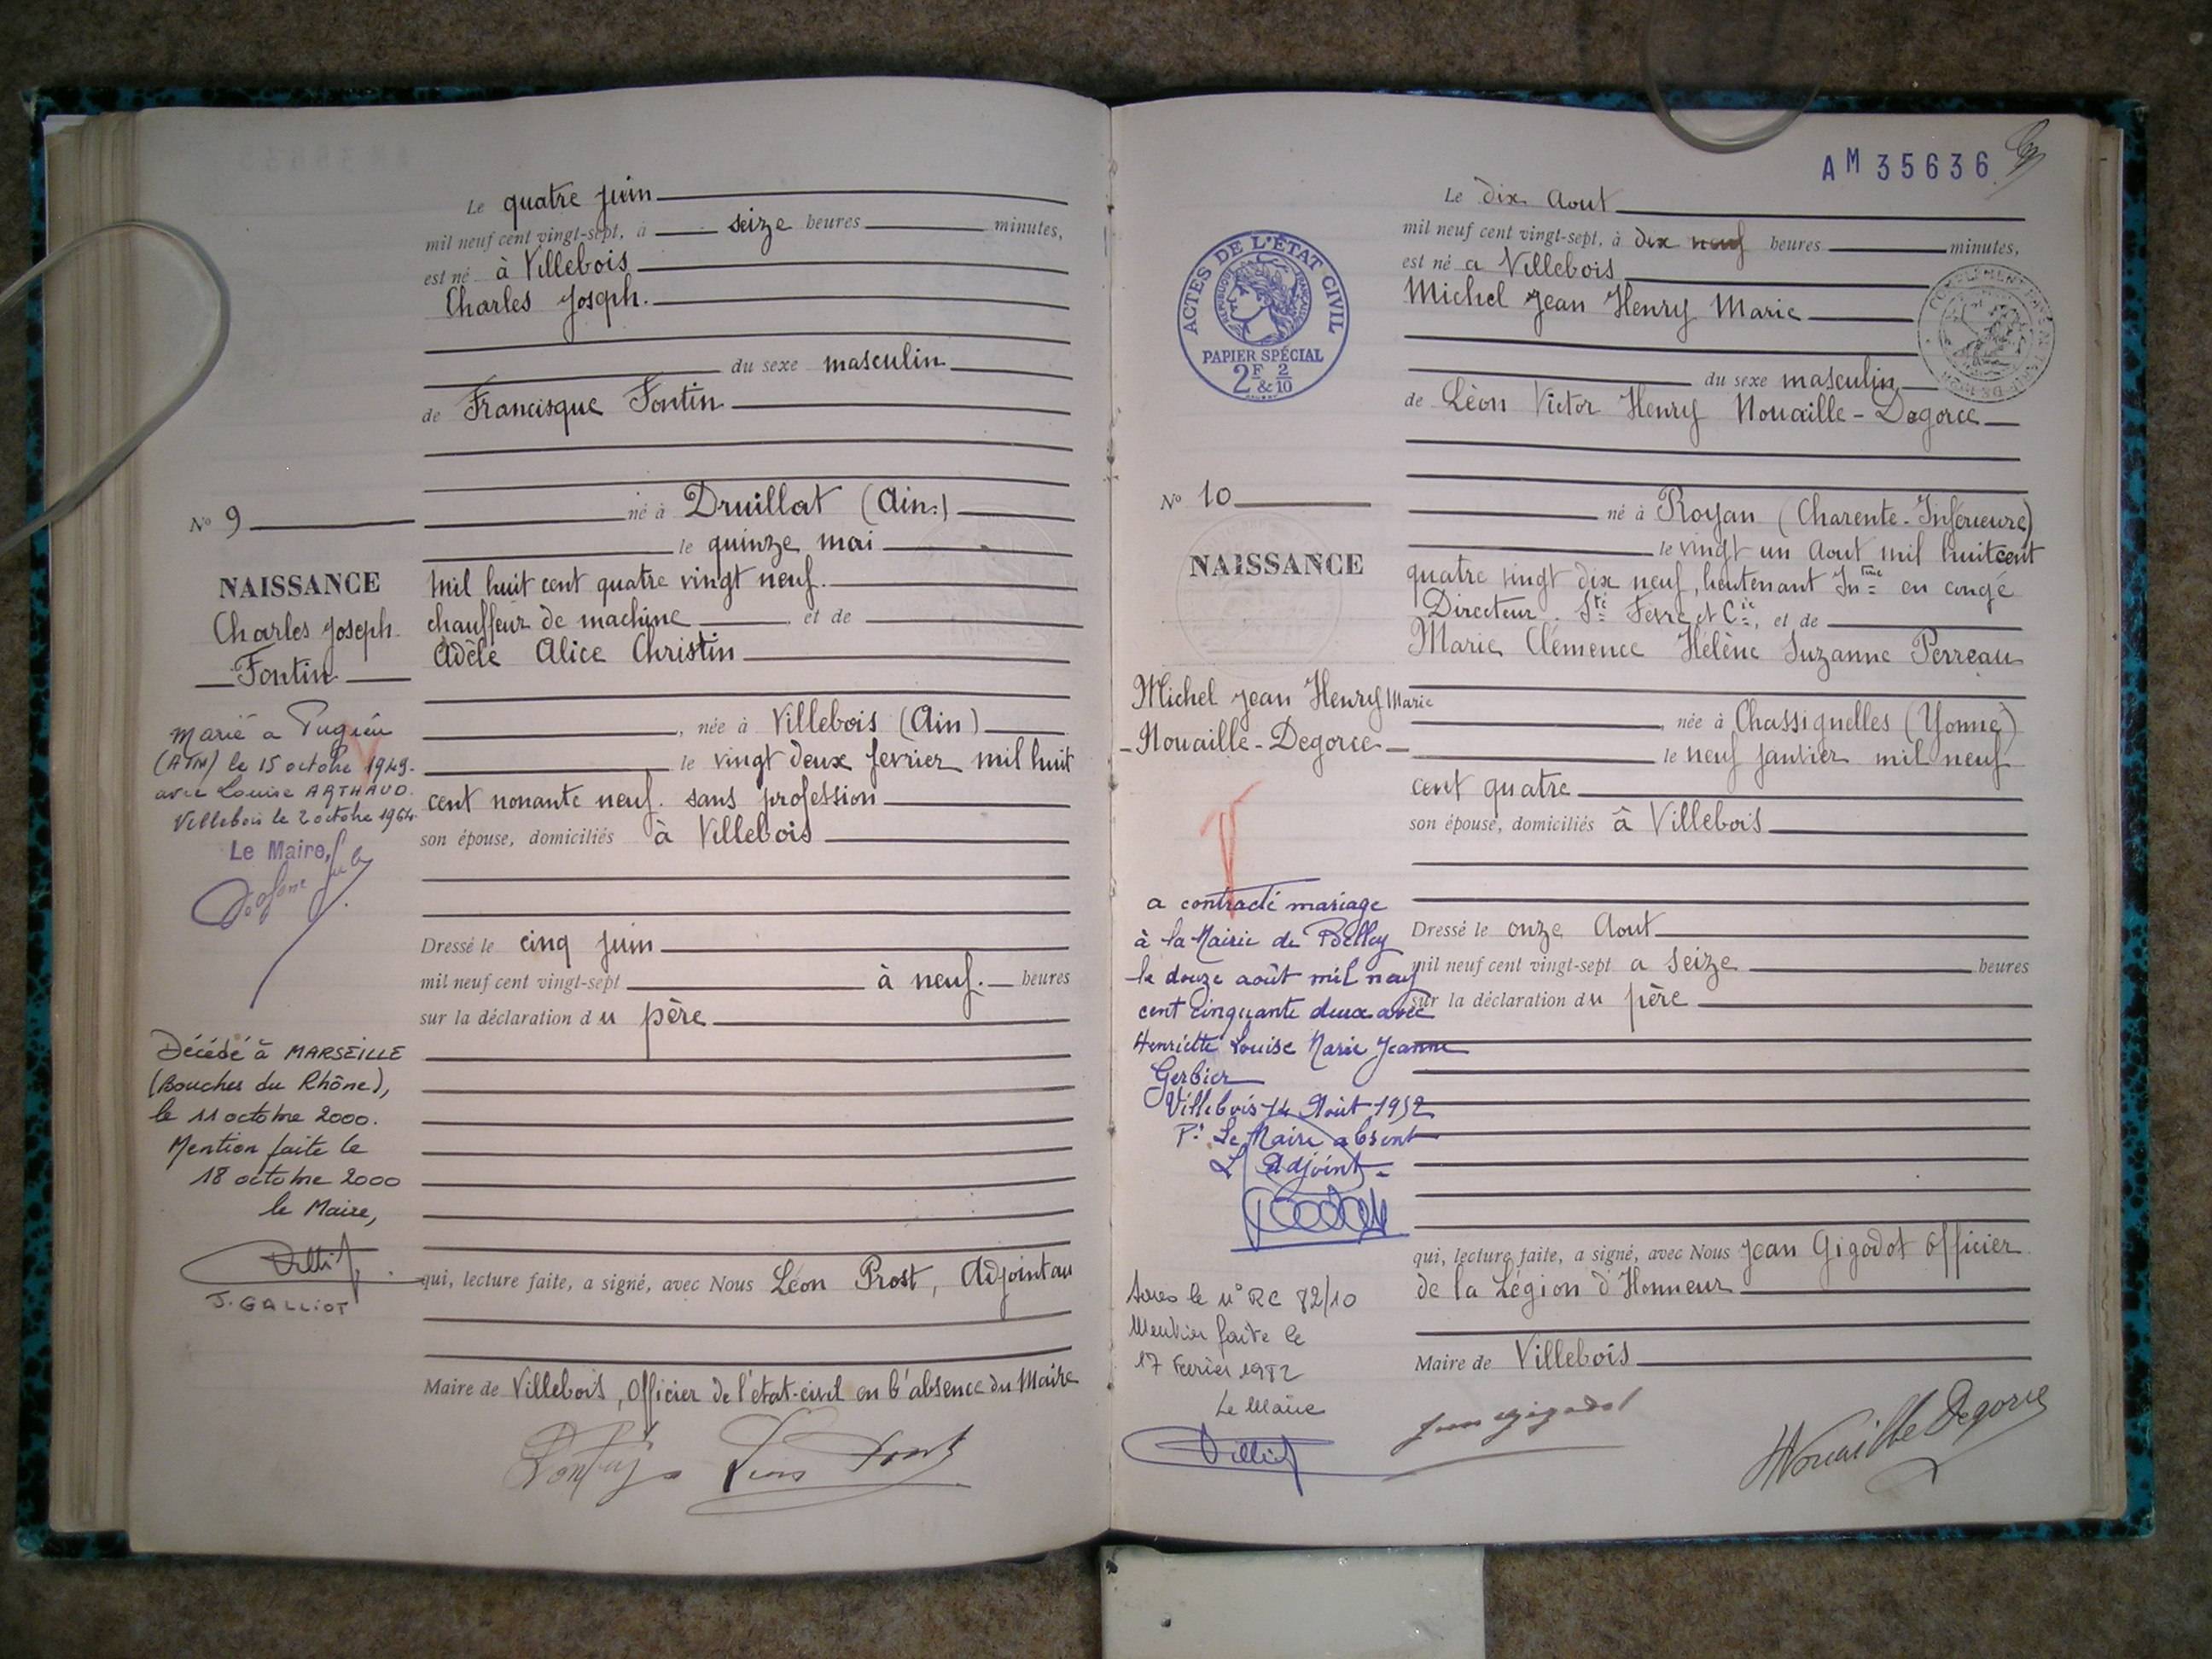 Le quatre juin
mil neuf cent vingt-sept, à seize heures minutes,
est né à Villebois
Charles Joseph.
du sexe masculin
de Francisque Fontin
N° 9
né à Druillat (Ain.)
le quinze mai
NAISSANCE
mil huit cent quatre vingt neuf.
Charles Joseph
Fontin
chauffeur de machine, et de
Adèle Alice Christin
, née à Villebois (Ain)
le vingt deux fevrier mil huit
cent nonante neuf. sans profession
son épouse, domiciliés à Villebois
Marié à Pugieu
(Ain) le 15 octobre 1949.
avec Louise ARTHAUD.
Villebois le 2 octobre 1964.
Le Maire,
Dressé le cinq juin
mil neuf cent vingt-sept à neuf. heures
sur la déclaration du père
Décédé à MARSEILLE
(Bouches du Rhône),
le 11 octobre 2000.
Mention faite le
18 octobre 2000
le Maire,
J. GALLIOT
qui, lecture faite, a signé, avec Nous Léon Prost, Adjoint au
Maire de Villebois, Officier de l'état-civil en l'absence du Maire
AM 35636
ACTES DE L'ÉTAT CIVIL
RÉPUBLIQUE FRANÇAISE
PAPIER SPÉCIAL
2F & 2/10
Le dix Aout
mil neuf cent vingt-sept, à dix neuf heures minutes,
est né a Villebois
Michel Jean Henry Marie
du sexe masculin
de Léon Victor Henry Nouaille-Degorce
N° 10
né à Royan (Charente-Inférieure)
NAISSANCE
le vingt un Aout mil huit cent
quatre vingt dix neuf, lieutenant In en congé
Directeur. Sté Fèvre et Cie, et de
Marie Clémence Hélène Suzanne Perreau
Michel Jean Henry Marie
Nouaille-Degorce
, née à Chassignelles (Yonne)
le neuf janvier mil neuf
cent quatre
son épouse, domiciliés à Villebois
a contracté mariage
à la Mairie de Belley
le douze août mil neuf
cent cinquante deux avec
Henriette Louise Marie Jeanne
Gerbier
Villebois 14 Août 1952
Pr Le Maire absent
L'Adjoint
Dressé le onze Aout
mil neuf cent vingt-sept a seize heures
sur la déclaration du père
le n° RC 82/10
Mention faite le
17 Fevrier 1982
Le Maire
qui, lecture faite, a signé, avec Nous Jean Gigodot Officier
de la Légion d'Honneur
Maire de Villebois
Jean Gigodot
HNouaille Degorce